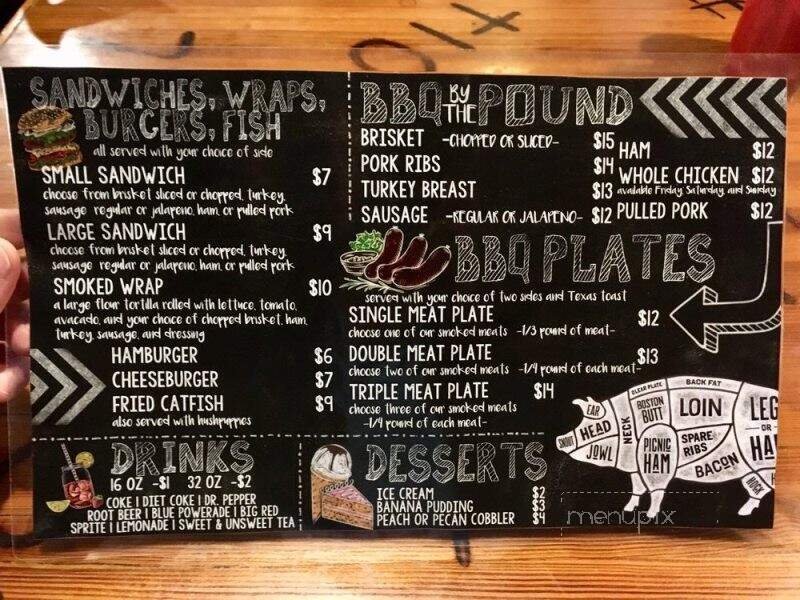 SANDWICHES, WRAPS,
BURGERS, FISH
all served with your choice of side
SMALL SANDWICH $7
choose from brisket sliced or chopped, turkey,
sausage regular or jalapeno, ham, or pulled pork
LARGE SANDWICH $9
choose from brisket sliced or chopped, turkey,
sausage regular or jalapeno, ham, or pulled pork
SMOKED WRAP $10
a large flour tortilla rolled with lettuce, tomato,
avacado, and your choice of chopped brisket, ham,
turkey, sausage, and dressing
HAMBURGER $6
CHEESEBURGER $7
FRIED CATFISH $9
also served with hushpuppies
DRINKS
16 OZ -$1 32 OZ -$2
COKE | DIET COKE | DR. PEPPER
ROOT BEER | BLUE POWERADE | BIG RED
SPRITE | LEMONADE | SWEET & UNSWEET TEA
BBQ BY THE POUND
BRISKET -CHOPPED OR SLICED- $15
PORK RIBS $14
TURKEY BREAST $13
SAUSAGE -REGULAR OR JALAPENO- $12
HAM $12
WHOLE CHICKEN $12
available Friday, Saturday, and Sunday
PULLED PORK $12
BBQ PLATES
served with your choice of two sides and Texas toast
SINGLE MEAT PLATE $12
choose one of our smoked meats -1/3 pound of meat-
DOUBLE MEAT PLATE $13
choose two of our smoked meats -1/4 pound of each meat-
TRIPLE MEAT PLATE $14
choose three of our smoked meats
-1/4 pound of each meat-
DESSERTS
ICE CREAM $2
BANANA PUDDING $3
PEACH OR PECAN COBBLER $4
EAR
SNOUT
HEAD
JOWL
NECK
CLEAR PLATE
BACK FAT
BOSTON
BUTT
LOIN
LEG
OR
HA
PICNIC
HAM
SPARE
RIBS
BACON
HOCK
menupix